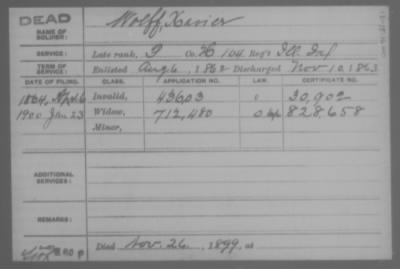 DEAD
NAME OF SOLDIER:
Wolff, Xavier
SERVICE:
Late rank, P Co. H, 104 Reg't Ill. Inf
TERM OF SERVICE:
Enlisted Aug 6, 1862 Discharged Nov 10, 1863
DATE OF FILING. CLASS. APPLICATION NO. LAW. CERTIFICATE NO.
1864, Invalid, 43603 30,902
1900 Jan 23 Widow, 712,480 828,658
Minor,
ADDITIONAL SERVICES:
REMARKS:
Died Nov. 26, 1899, at